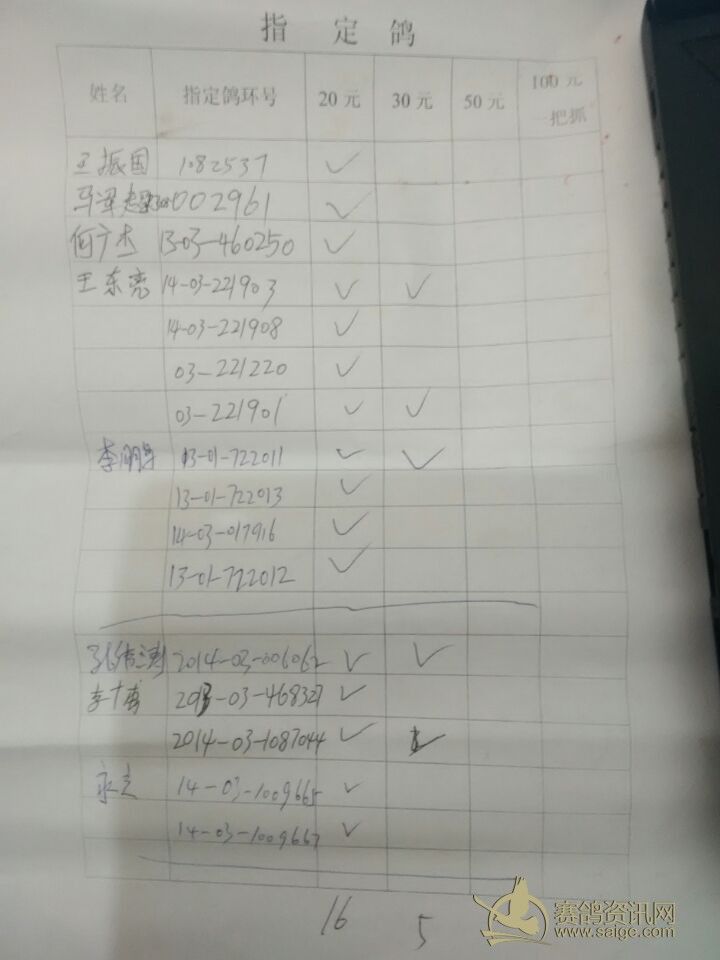 指 定 鸽
姓名 指定鸽环号 20 元 30 元 50 元 100 元
一把抓
王振国 1082537 ✓
002961 ✓
何广杰 13-03-460250 ✓
王东亮 14-03-221903 ✓ ✓
14-03-221908 ✓
03-221220 ✓
03-221901 ✓ ✓
13-01-722011 ✓ ✓
13-01-722013 ✓
14-03-017916 ✓
13-01-722012 ✓
2014-03-006062 ✓ ✓
李广博 2013-03-468327 ✓
2014-03-1087044 ✓ ✓
14-03-1009665 ✓
14-03-1009667 ✓
16 5
赛鸽资讯网
www.saige.com